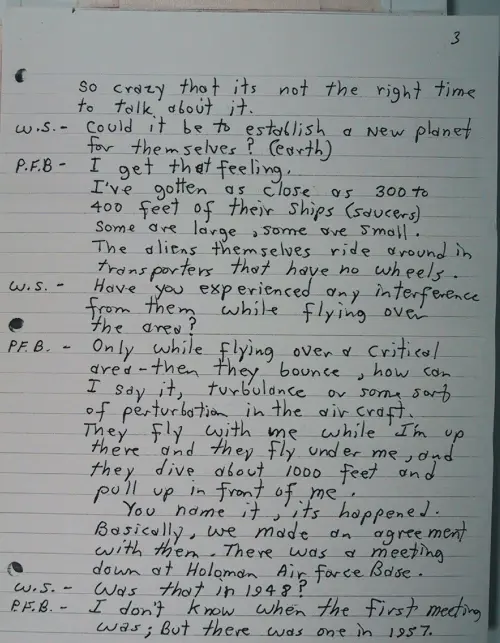 3
So crazy that its not the right time
to talk about it.
W.S. - Could it be to establish a New planet
for themselves? (earth)
P.F.B - I get that feeling.
I've gotten as close as 300 to
400 feet of their ships (saucers)
Some are large, some are small.
The aliens themselves ride around in
transporters that have no wheels.
W.S. - Have you experienced any interference
from them while flying over
the area?
P.F.B. - Only while flying over a critical
area - then they bounce, how can
I say it, turbulance or some sort
of perturbation in the air craft.
They fly with me while I'm up
there and they fly under me, and
they dive about 1000 feet and
pull up in front of me.
You name it, its happened.
Basically, we made an agreement
with them. There was a meeting
down at Holoman Air force Base.
W.S. - Was that in 1948?
P.F.B. - I don't know when the first meeting
was; But there was one in 1957.